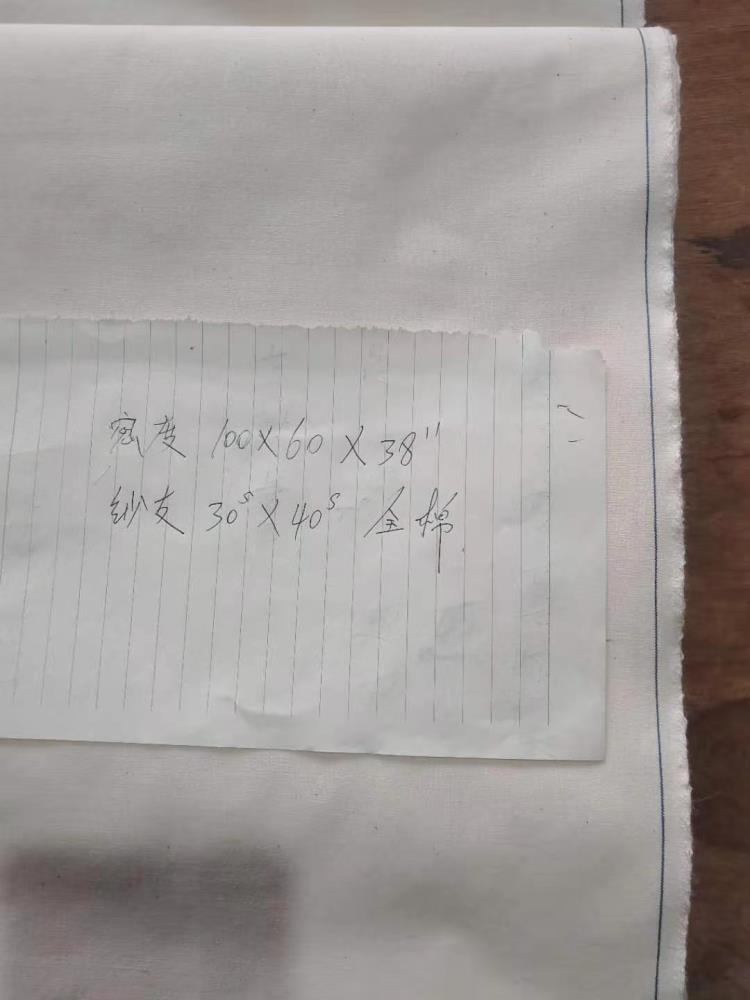 密度 100×60×38"
纱支 30ˢ×40ˢ 全棉